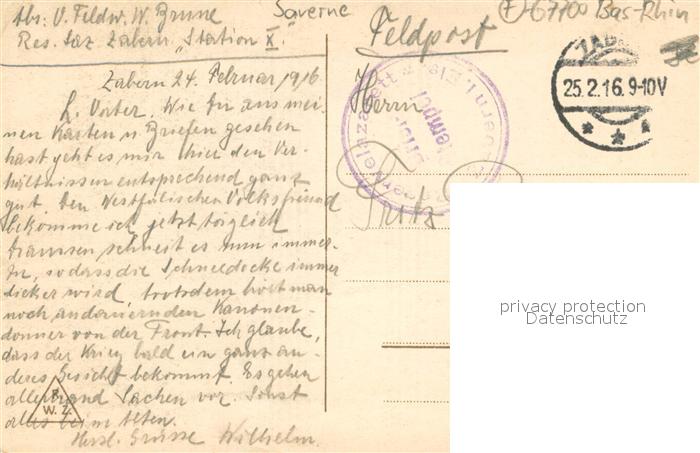 Abs: V. Feldw. W. Brune
Res. Laz. Zabern „Station X."
Saverne
(F) 67700 Bas-Rhin
Feldpost
Zabern 24. Februar 1916
L. Vater. Wie Du aus mei-
nen Karten u. Briefen gesehen
hast geht es mir hier den Ver-
hältnissen entsprechend ganz
gut. Den Westfälischen Volksfreund
bekomme ich jetzt täglich
draussen schneit es nun immer-
zu, sodass die Schneedecke immer
dicker wird, trotzdem hört man
noch andauernden Kanonen-
donner von der Front. Ich glaube,
dass der Krieg bald ein ganz an-
deres Gesicht bekommt. Es gehen
allerhand Sachen vor. Sonst
alles beim Alten.
Herzl. Grüsse Wilhelm.
W. Z.
Herrn
Fritz
25.2.16.9-10V
Brief-
stempel
privacy protection
Datenschutz